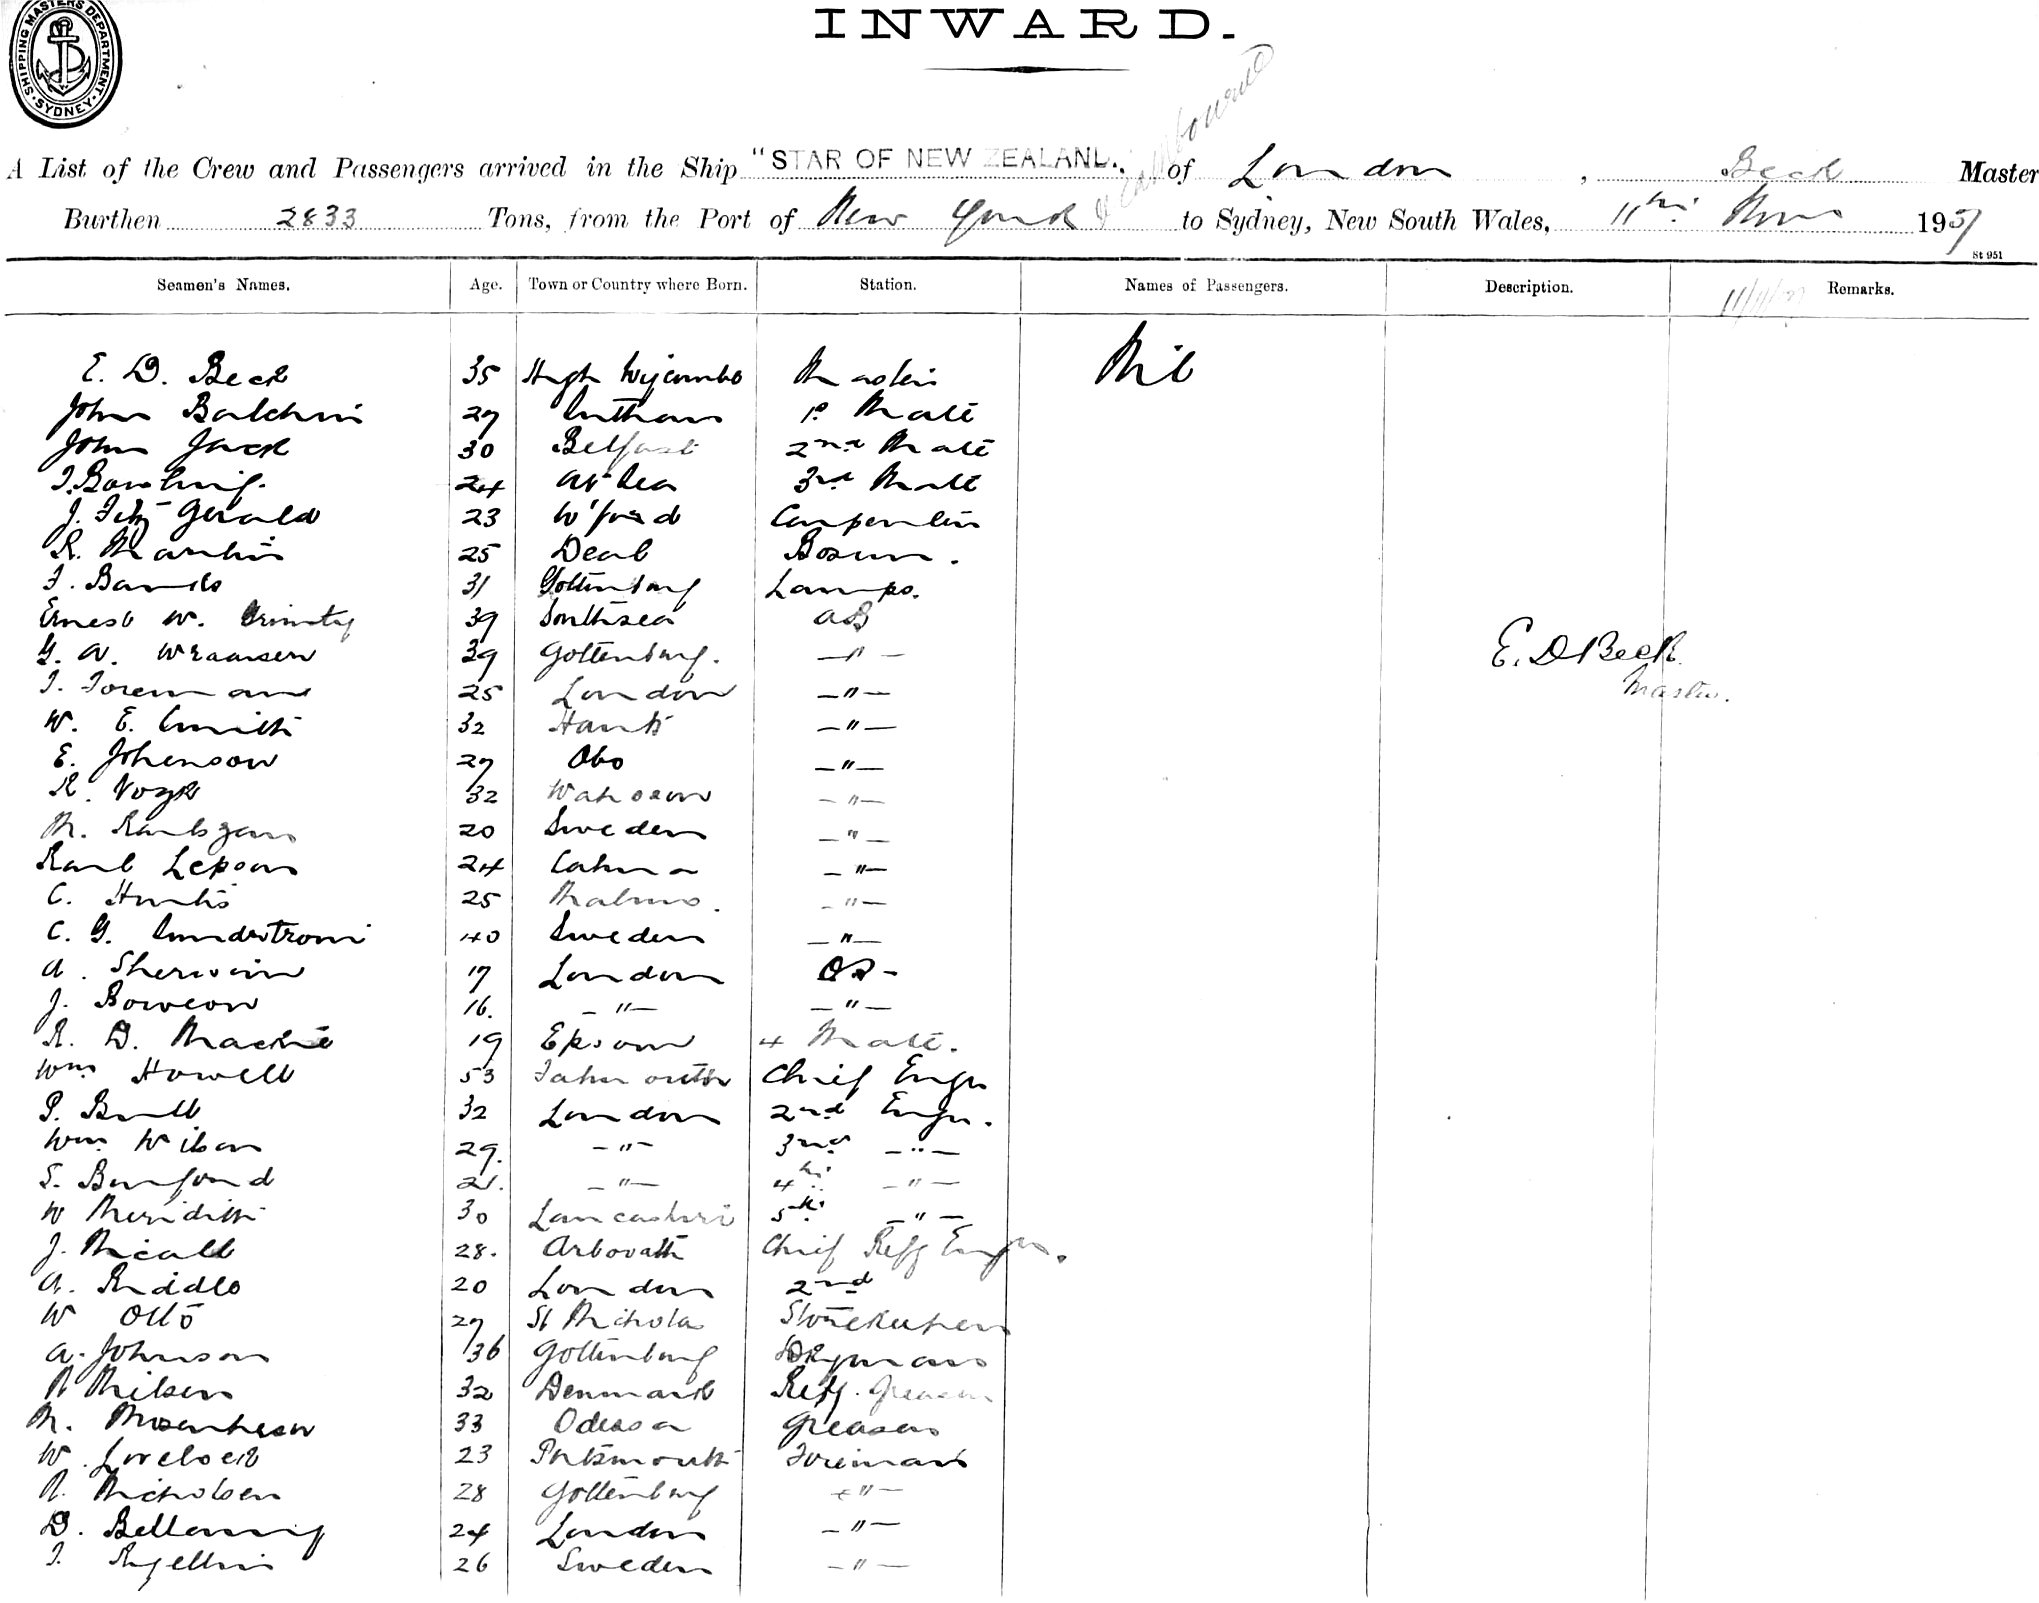 SHIPPING MASTERS DEPARTMENT. SYDNEY
INWARD.
& Melbourne
A List of the Crew and Passengers arrived in the Ship "STAR OF NEW ZEALAND." of London, Beck Master
Burthen 2833 Tons, from the Port of New York to Sydney, New South Wales, 11th Nov 1907
St 951
Seamen's Names. Age. Town or Country where Born. Station. Names of Passengers. Description. 11/11/07 Remarks.
E. D. Beck 35 High Wycombe Master Nil
John Baldwin 27 1st Mate
John Jack 30 Belfast 2nd Mate
J. Bowling 24 At Sea 3rd Mate
J. Fitz Gerald 23 W'ford Carpenter
R. Martin 25 Deal Bosun.
F. Banks 31 Gottenburg Lamps.
Ernest W. Grimsty 39 Southsea AB
G. A. 39 Gottenburg. —"—
E. D Beck
Master.
J. Foreman 25 London —"—
W. E. Smith 32 Hants —"—
E. Johenson 27 Abo —"—
R. 32 —"—
20 Sweden —"—
Karl Lepson 24 —"—
C. 25 Malmo. —"—
C. G. Sundstrom 40 Sweden —"—
A. Sherwin 17 London OS -
J. 16. —"— —"—
R. D. Mackie 19 Epsom 4 Mate.
Wm Howell 53 Falmouth Chief Engr
P. Bull 32 London 2nd Engr.
Wm Wilson 29. —"— 3rd —"—
S. Bamford 21. —"— 4th —"—
W Meridith 30 Lancashire 5th —"—
J. 28. Arbovath Chief Reffg Engr.
A. Riddle 20 London 2nd
W Otto 27 St Nicholas Storekeeper
A. Johnson 36 Gottenburg Dkyman
N Nilsen 32 Denmark Reff. Greaser
M. 33 Odessa Greaser
W. Lovelock 23 Portsmouth Fireman
N. Nicholsen 28 Gottenburg —"—
D. Bellamy 24 London —"—
26 Sweden —"—